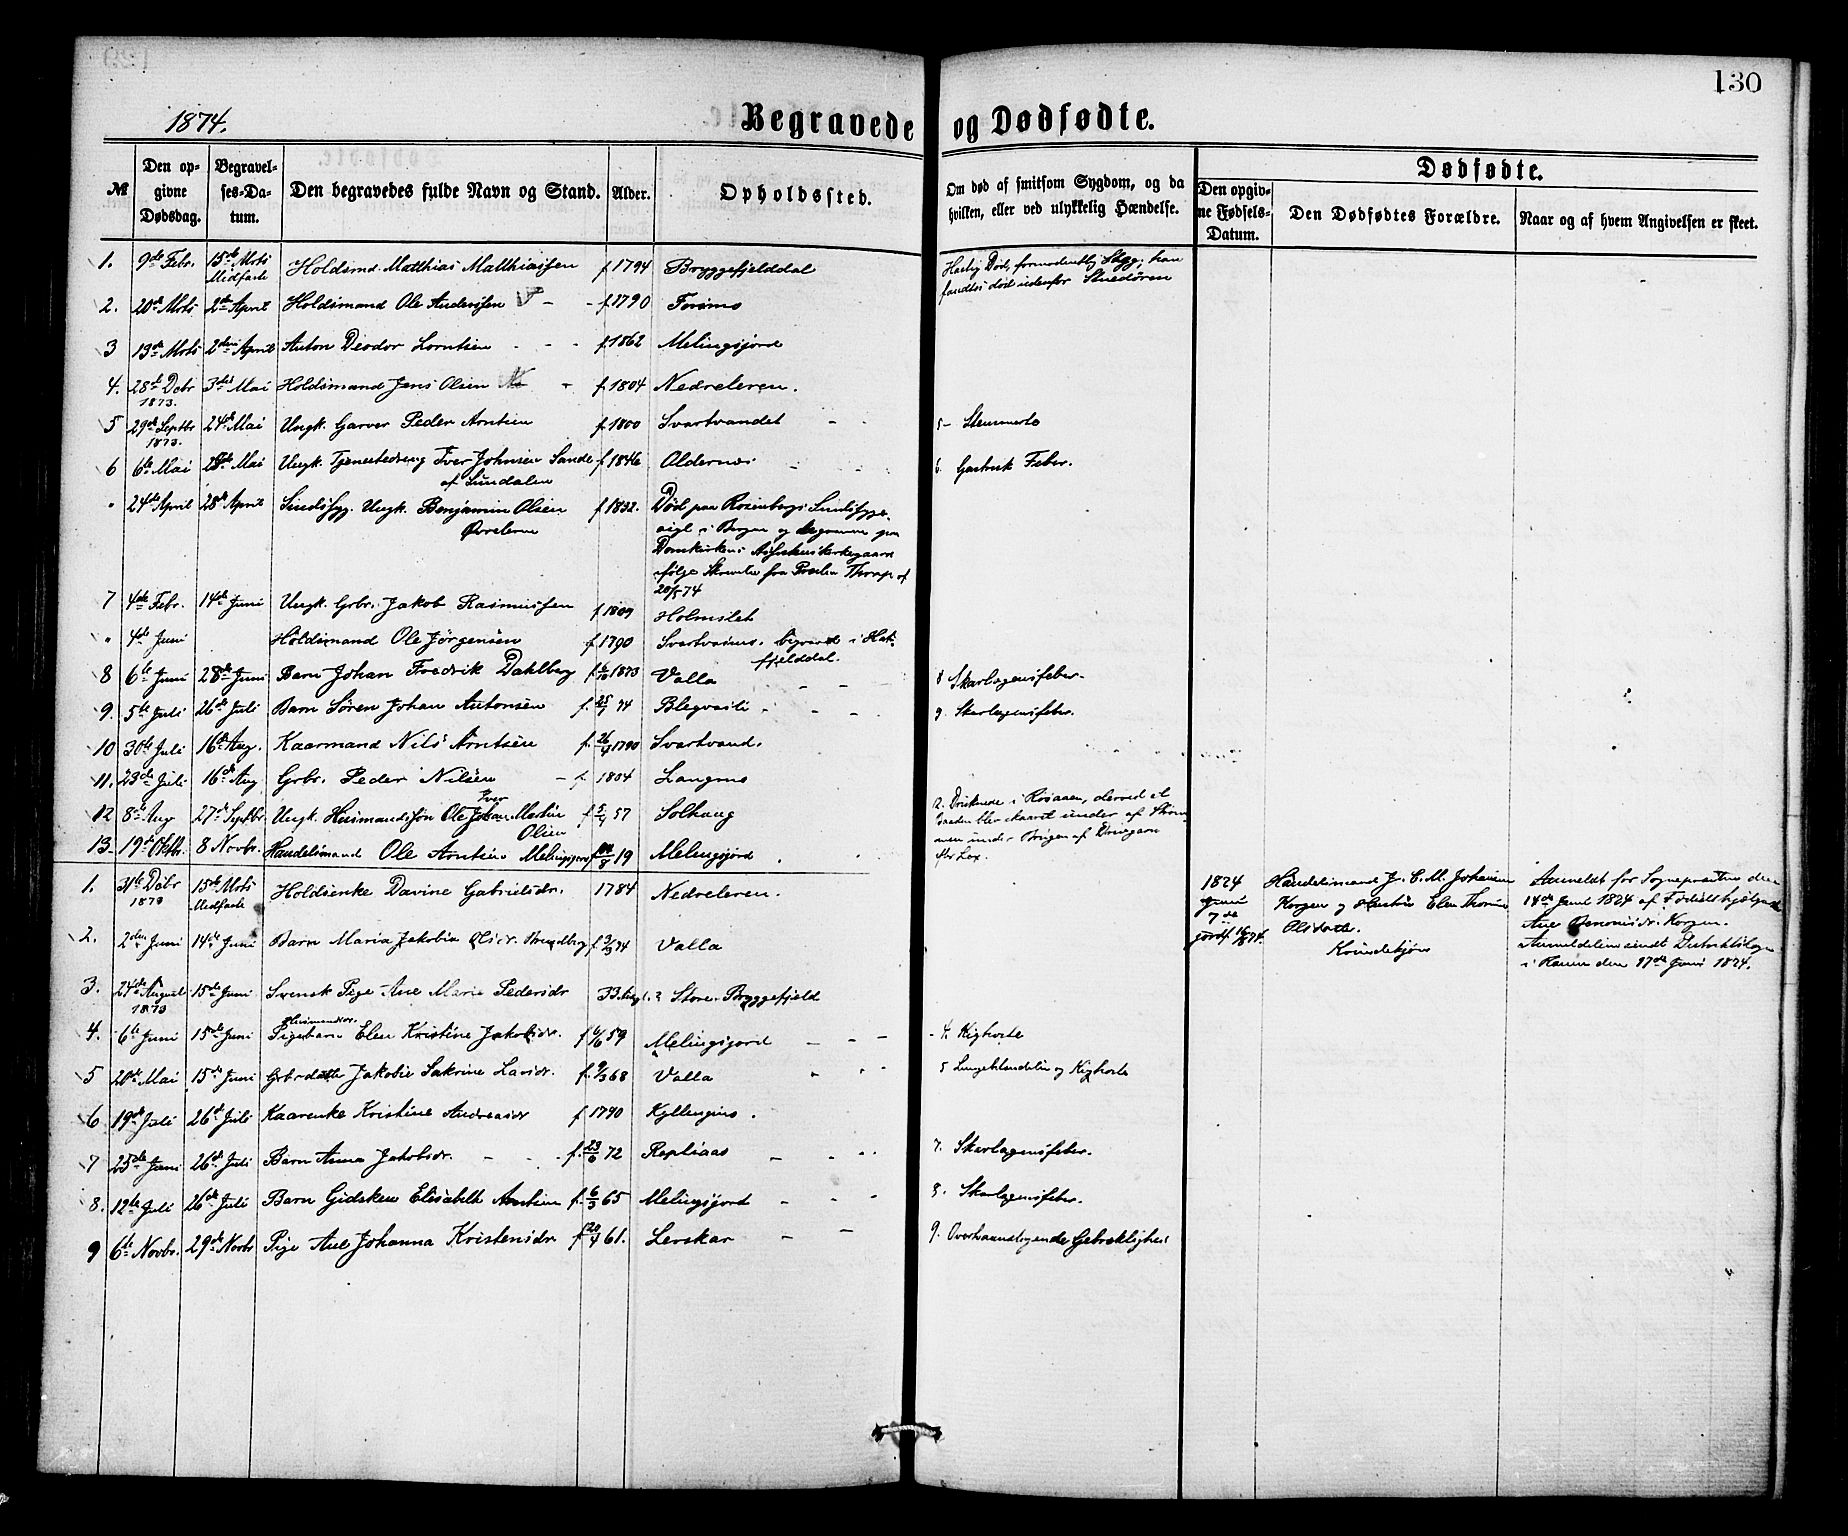 130
1874.
Begravede og Dødfødte.
№
Den opgivne Dødsdag.
Begravelses-Datum.
Den begravedes fulde Navn og Stand.
Alder.
Opholdssted.
Om død af smitsom Sygdom, og da hvilken, eller ved ulykkelig Hændelse.
Dødfødte.
Den opgivne Fødsels-Datum.
Den Dødfødtes Forældre.
Naar og af hvem Angivelsen er skeet.
1. 9de Febr. 15de Mrts Midfaste Holdsmd. Matthias Matthiassen f 1794 Bryggefjelddal Hastig Død, formodentlig Slag; han
fandtes død udenfor Stuedøren
2. 20de Mrts 2den April Holdsmand Ole Anderssen f. 1790 Forsmo
3 19de Mrts 2den April Anton Deodor Lorntsen f. 1862 Melingsjord
4. 28de Dcbr 1873. 3die Mai Holdsmand Jens Olsen f. 1804 Nedreleren.
5 29de Septbr 1873. 24de Mai Ungk. Garver Peder Arntsen f. 1800 Svartvandet 5
6 6te Mai 28de Mai Ungk. Tjenestedreng Iver Johnsen Sande f. 1846 Aldernes 6. Gastrisk Feber.
af Sundalen
" 24de April 28de April Sindssyg. Ungk. Benjamin Olsen f. 1832. Død paa Rosenbergs Sindssyge-
Øvreleren i Bergen og begraven paa
Domkirkens
følge Skrivelse fra
20/5 74
7 4de Febr. 14de Juni Ungk. Grbr. Jakob Rasmussen f. 1809 Holmslet
" 4de Juni Holdsmand Ole Jørgensen f. 1790 Svartvasmo. begravet i Hat-
fjelddal.
8 6te Juni 28de Juni Barn Johan Fredrik Dahlberg 1873 Valla 8 Skarlagensfeber.
9. 5te Juli 26de Juli Barn Søren Johan Antonsen f. 74 Blegvasli 9. Skarlagensfeber.
10 30te Juli 16de Aug. Kaarmand Nils Arntsen f. 26/4 1790 Svartvand.
11. 23de Juli 16de Aug Grbr. Peder Nilsen f. 1804 Langmo
12 8de Aug 27de Septbr. Ungk. Husmandssøn Ole Johan Iver Martin f. 57 Solhaug 12. Druknede i Rosaaen, derved at
Olsen Baaden blev skaaret under af Strøm-
men under Brugen af Drivgarn
efter Lax.
13. 19de Oktbr. 8 Novbr. Handelsmand Ole Arntsen Melingsjord f. 19 Melingsjord
1. 31te Dcbr 1873 15de Mrts Midfaste Holdsenke Davine Gabrielsdr. 1784 Nedreleren.
1874 Juni 7de Handelsmand J. C. M. Johansen Korgen og Hustru Elen Olsdatter.
Anmeldt for Sognepræsten den 14de Juni 1874 af Fødselshjælperske
Ane Korgen.
Anmeldelsen sendt Distriktslægen
i Ranen den 17de Juni 1874.
2. 2den Juni 14de Juni Barn Maria Jakobin Olsdr. f. 74 Valla
3. 24de August 1873 15de Juni Svensk Pige Ane Marie Pedersdr 33 Store-Bryggefjeld
4. 6te Juni 15de Juni Husmandsdr. Pigebarn Elen Kristine Jakobsdr. f. 59 Melingsjord 4. Kighoste
5 20de Mai 15de Juni Grbrdatter Jakobie Sakrine Larsdr. f. 9/3 68 Valla 5 Lungebetændelse og Kighoste
6 19de Juli 26de Juli Kaarenke Kristine Andreasdr f. 1790 Kyllingmo.
7 25de Juni 26de Juli Barn Anna Jakobsdr. f. 23/6 72 Rapliaas 7. Skarlagensfeber.
8. 12te Juli 26de Juli Barn Gidsken Elisabeth Arntsen f. 6/3 65 Melingsjord 8. Skarlagensfeber.
9 6te Novbr. 29de Novbr Pige Ane Johanna Kristensdr. f. 20/4 61. Lerskar 9. Overhaandtagende Gebrekliged